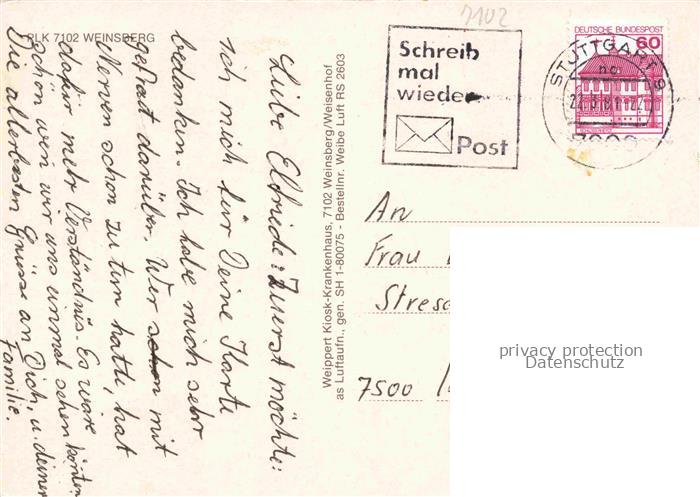 PLK 7102 WEINSBERG
Liebe Elfriede! Zuerst möchte
ich mich für Deine Karte
bedanken. Ich habe mich sehr
gefreut darüber. Wer schon mit
Nerven schon zu tun hatte, hat
dafür mehr Verständnis. Es wäre
schön wen wir uns einmal sehen könten
Die allerbesten Grüsse an Dich, u. deiner
Familie.
Weippert Kiosk-Krankenhaus, 7102 Weinsberg/Weisenhof
as Luftaufn., gen. SH 1-80075 - Bestellnr. Weibe Luft RS 2603
7102
Schreib
mal
wieder
Post
DEUTSCHE BUNDESPOST
60
STUTTGART 9
An
Frau
Stres
7500
privacy protection
Datenschutz